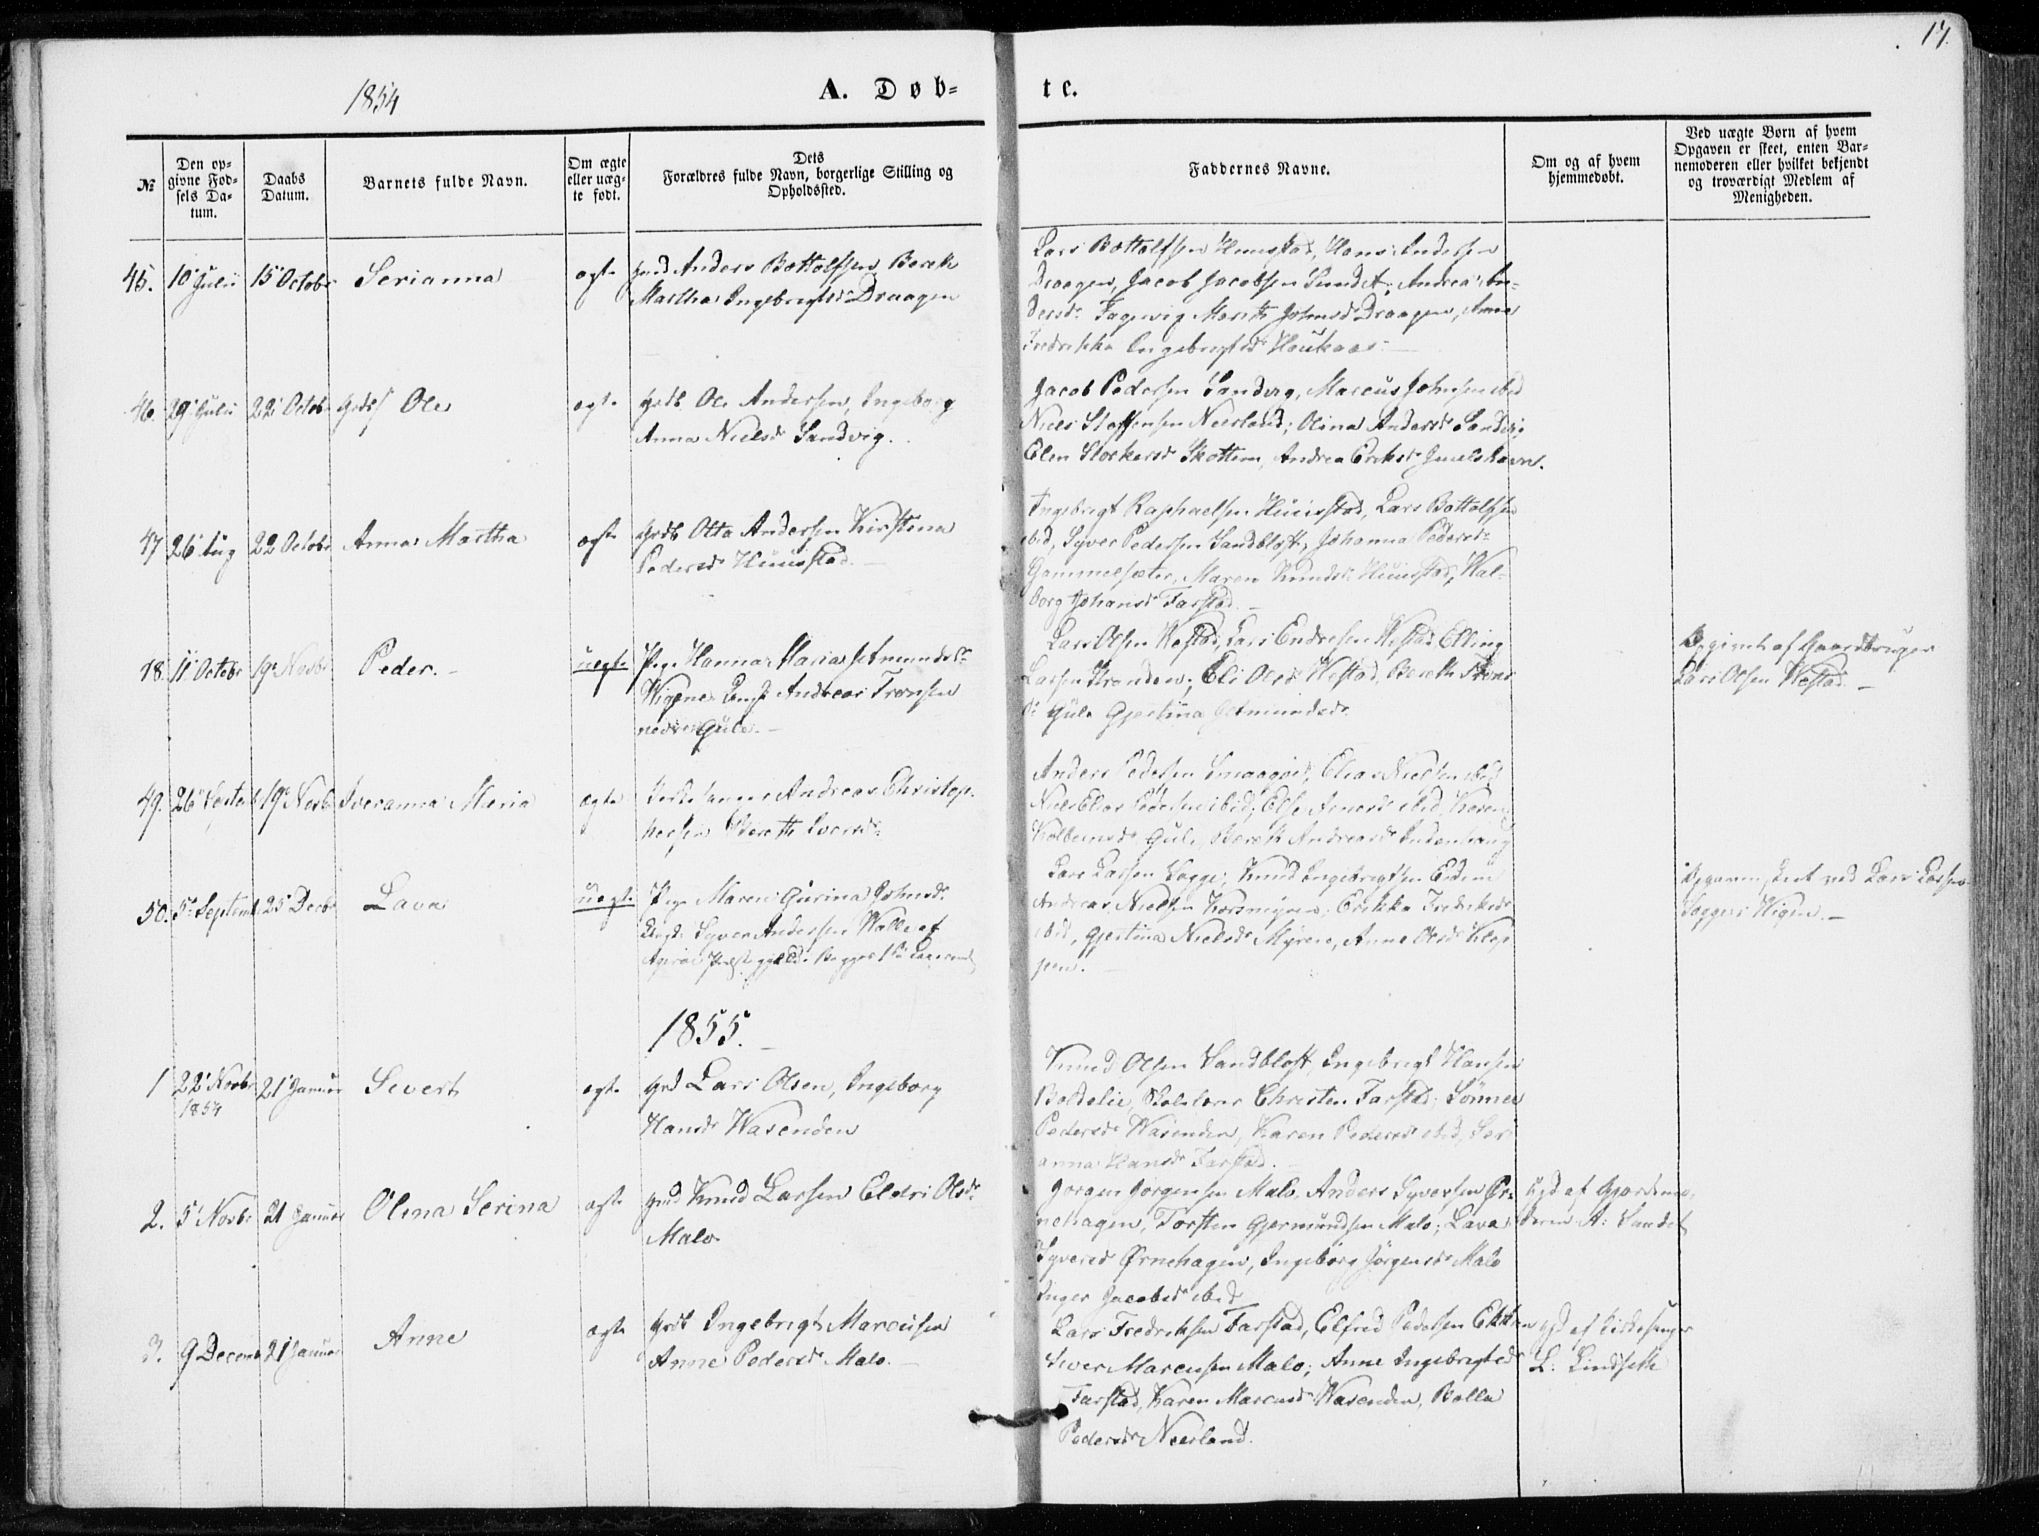 17.
1854
A. Døb-
te.
№
Den op-
givne Fød-
sels Da-
tum.
Daabs
Datum.
Barnets fulde Navn.
Om ægte
eller uæg-
te født.
Dets
Forældres fulde Navn, borgerlige Stilling og
Opholdssted.
Faddernes Navne.
Om og af hvem
hjemmedøbt.
Ved uægte Børn af hvem
Opgaven er skeet, enten Bar-
nemoderen eller hvilket bekjendt
og troværdigt Medlem af
Menigheden.
45. 10 Juli 15 Octobr Serianna ægte Anders Bottolfsen Bereth
Martha Ingebrigtsd Draagen
Lars Bottolfsen Huustad, Hans Andersen
Draagen, Jacob Jacobsen Sundet, Andrea An-
dersd Fagervig Marith Johnsd Draagen, Anne
Fredrikke Ingebrigtsd Haukaas
46. 29 Juli 22 Octobr Ole ægte Ole Andersen, Ingeborg
Anna Nielsd Sandvig.
Jacob Pedersen Sandvig, Marcus Johnsen ibid
Niels Steffensen Neerland; Olina Andersd Sandvig
Elen Andrea Eriksd
47 26 Aug 22 Octobr Anna Martha ægte Otto Andersen Kirstina
Pedersd Huustad.
Ingebrigt Raphaelsen Huustad, Lars Bottolfsen
ibid, Syver Pedersen Sandbløst, Johanna Pedersd
Gammelsæter, Maren Knudsd Huustad, Wal-
borg Johansd Farstad.
48. 11 Octobr 19 Novbr Peder. uægte Pige Hanna Maria Amundsd
Andreas Tronsen
nedre Gule.
Lars Olsen Westad, Lars Endresen Westad Elling
Larsen Eli Olsd Westad, Bereth
Gule Gjertina Amundsd
af Gaardbruger
Lars Olsen Westad.
49. 26 Septembr 19 Novbr Iveranna Maria ægte Andreas Christop-
hersen Bereth Iversd
Anders Pedersen Smaagøe, Elias Nielsen ibid
Niels Elias Pedersen ibid, Else ibid, Karen
Kolbeinsd Gule, Bereth Andreasd
50. 5 Septembr 25 Decbr Lava uægte Pige Maren Gurina Johnsd
Syver Andersen Walle af
Lars Larsen Sogge, Knud Ingebrigtsen Eidem
Andreas Nielsen Erikka Fredriksd
ibid, Gjertina Nielsd Myrene, Anne Olsd Klop-
pen.
Opgaven skeet ved Lars Larsen
Sogge
1855.
1 22 Novbr 1854 21 Januar Sivert ægte Lars Olsen, Ingeborg
Hansd Wasenden
Knud Olsen Sandbløst, Ingebrigt Hansen
Christen Farstad; Sønnev
Pedersd Wasenden, Karen Pedersd ibid, Seri
anna Hansd Farstad.
2. 5 Novbr 21 Januar Olina Serina ægte Knud Larsen Eldri Olsd
Malo
Jørgen Jørgensen Malo, Anders Syversen Ør-
nehagen, Torsten Gjermundsen Malo; Lava
Syversd Ørnehagen, Ingeborg Jørgensd Malo
Inger Jacobsd ibid
af Gjordemo-
deren A: Sandet
3. 9 Decembr 21 Januar Anne ægte Ingebrigt Marcusen
Anne Pedersd Malo.
Lars Fredriksen Farstad, Elfred Pedersen
Iver Marcusen Malo; Anne Ingebrigtsd
Farstad, Karen Marcusd Wasenden,
Pedersd Neerland.
af Kirkesanger
L. Lindseth